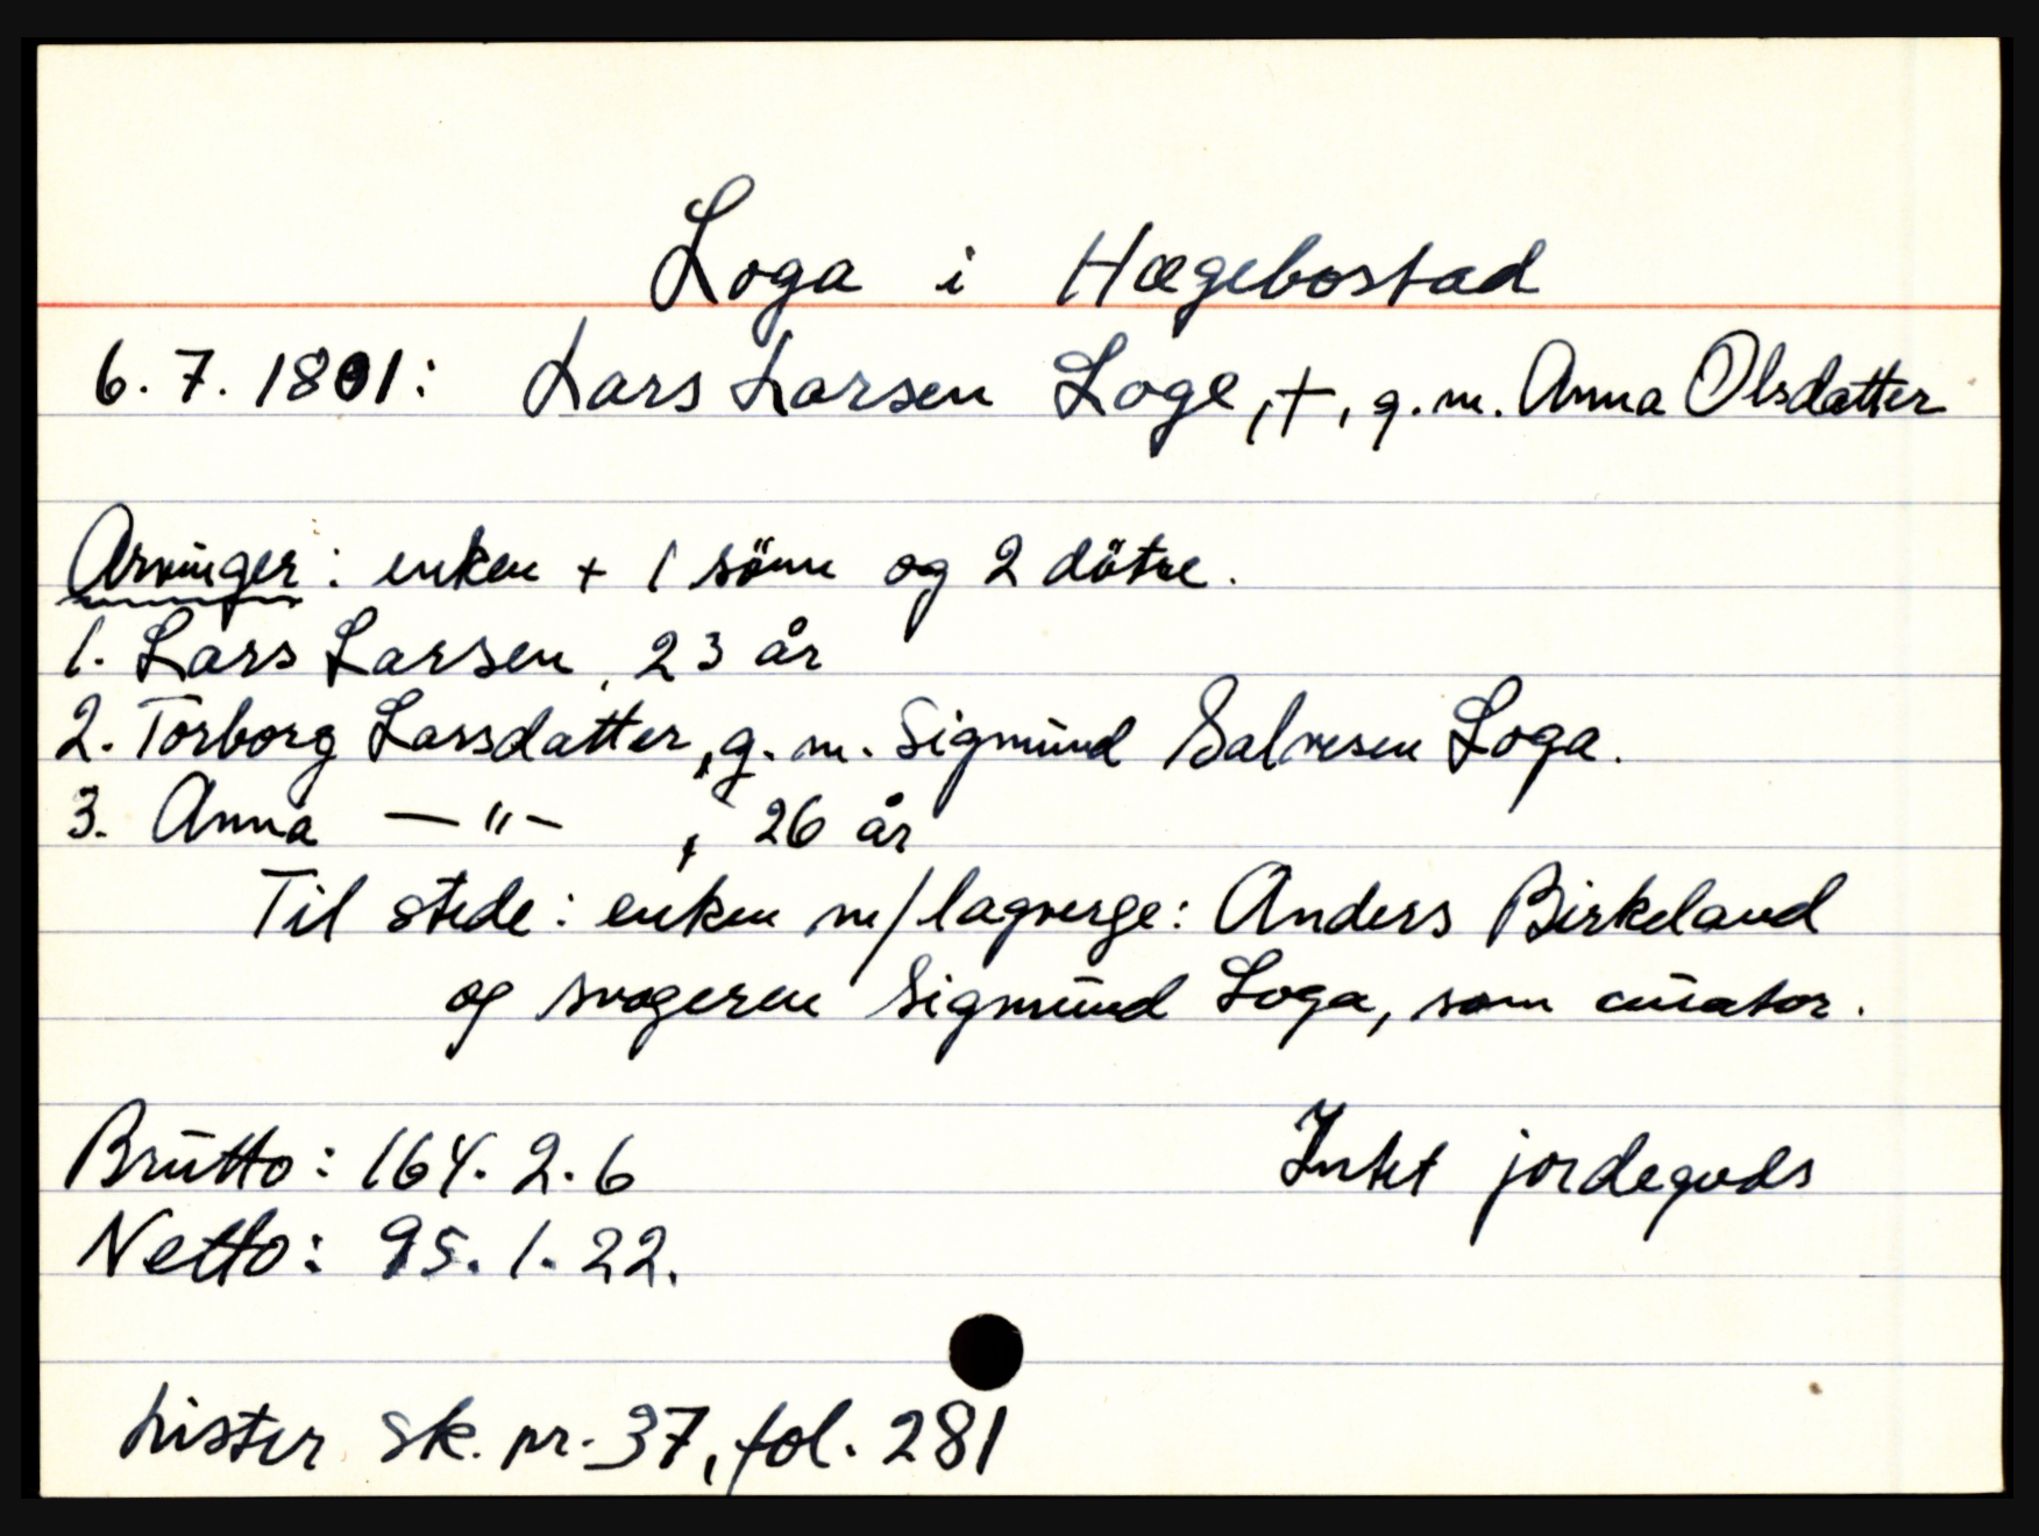 Loga i Hægebostad
6. 7. 1801: Lars Larsen Loge, +, g.m. Anna Olsdatter
Arvinger: enken + 1 sönn og 2 dötre.
1. Lars Larsen, 23 år
2. Torborg Larsdatter, g. m. Sigmund Salvesen Loga.
3. Anna — " — , 26 år
Til stede: enken m/lagverge: Anders Birkeland
og svogeren Sigmund Loga, som curator.
Brutto: 164. 2. 6 Intet jordegods
Netto: 95. 1. 22.
Lister sk. pr. 37, fol. 281